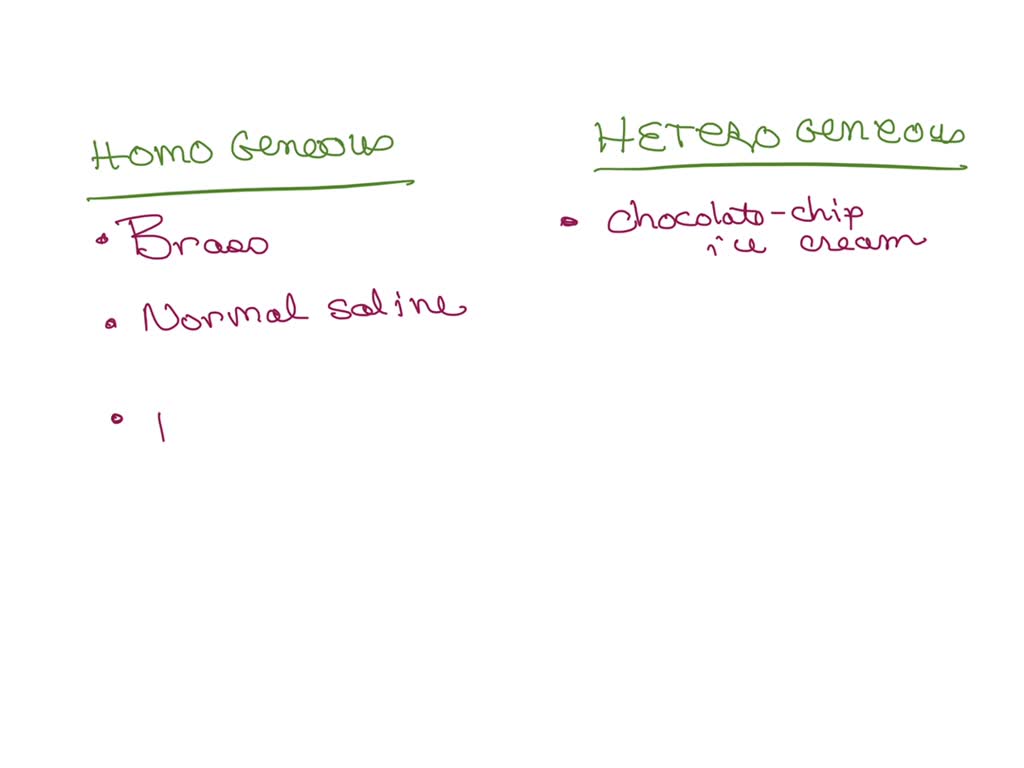 Homo Geneous
• Brass
• Normal saline
•
HETERO GENEOUS
• Chocolate-chip
ice cream